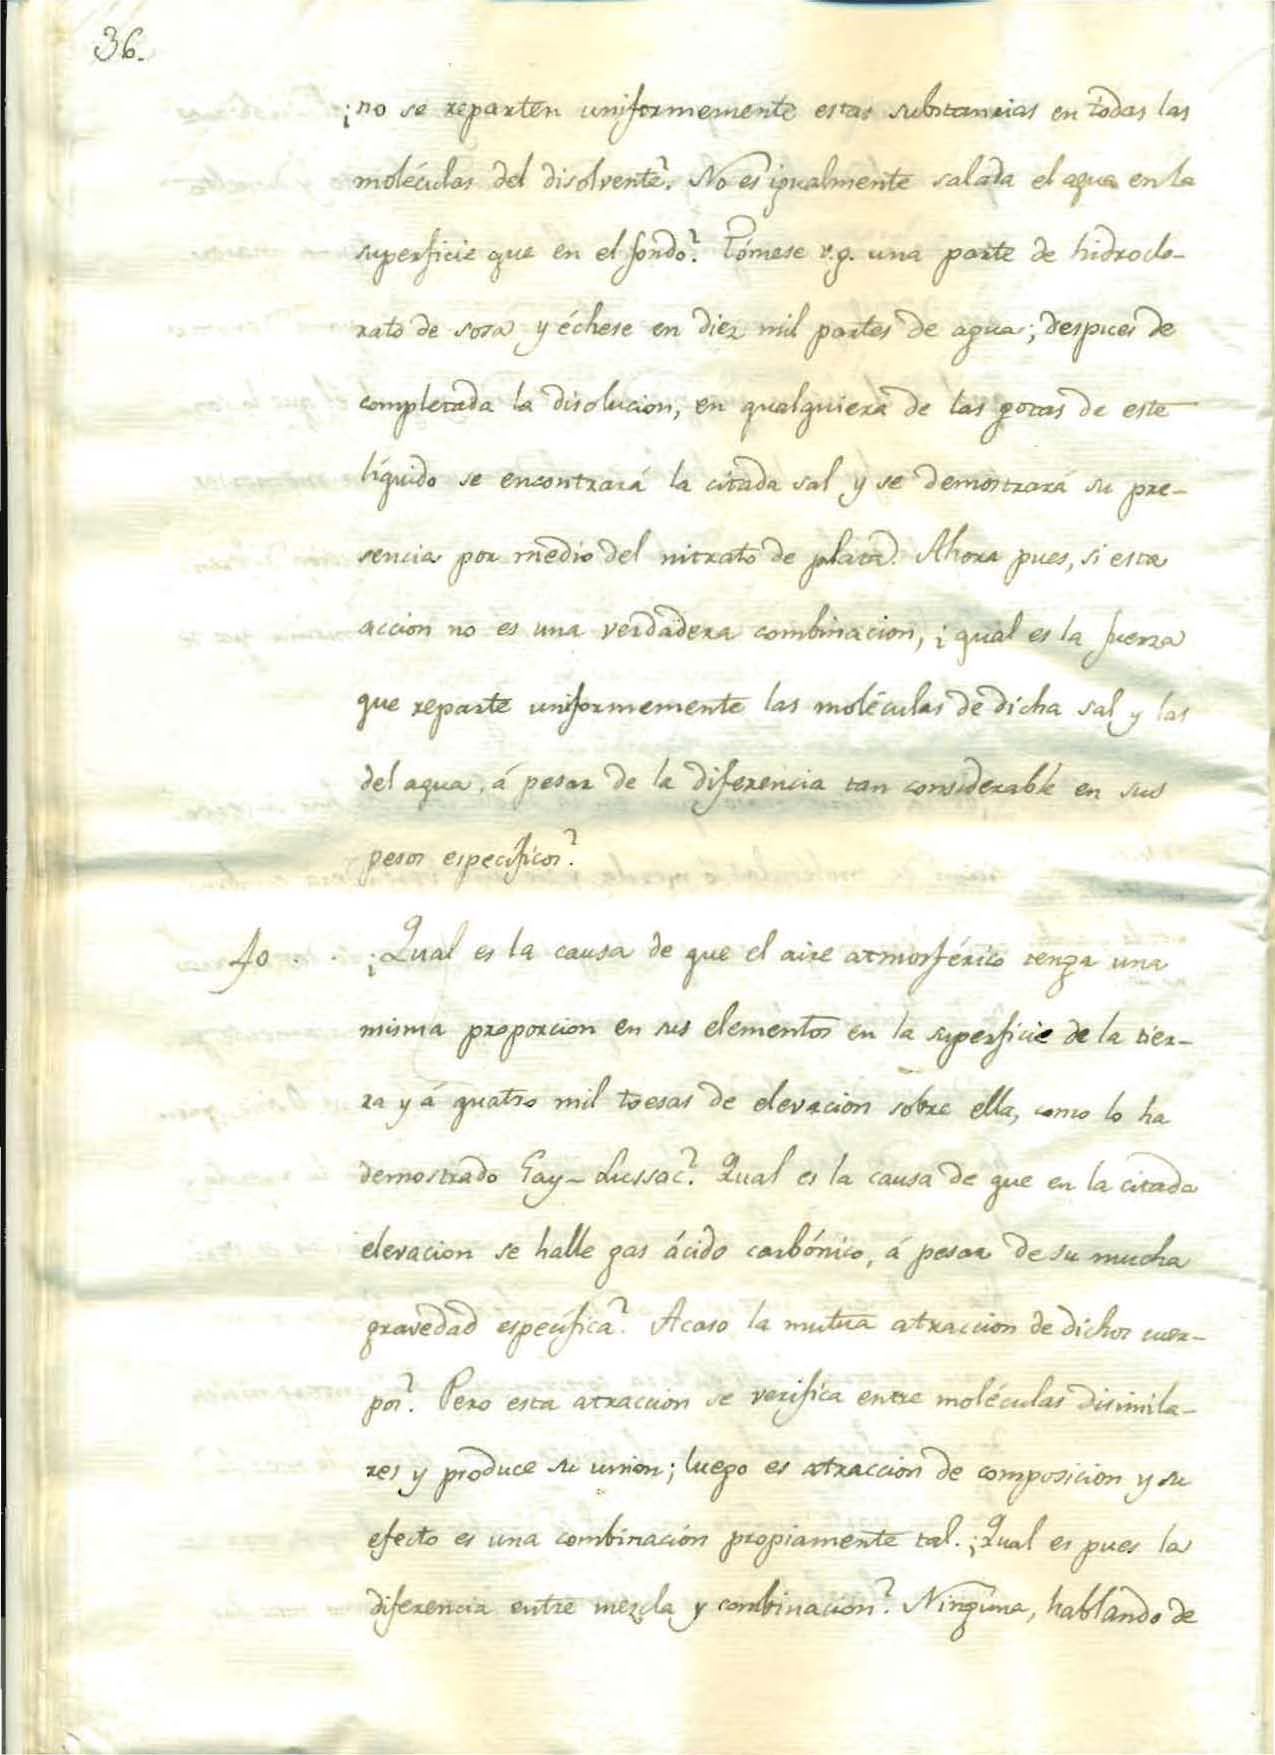 36.
¿no se reparten uniformemente estas substancias en todas las
moléculas del disolvente? No es igualmente salada el agua en la
superficie que en el fondo? Tómese v.g. una parte de hidroclo-
rato de sosa y échese en diez mil partes de agua; despues de
completada la disolucion, en qualquiera de las gotas de este
líquido se encontrará la citada sal y se demostrará su pre-
sencia por medio del nitrato de plata. Ahora pues, si esta
accion no es una verdadera combinacion, ¿qual es la fuerza
que reparte uniformemente las moléculas de dicha sal y las
del agua, á pesar de la diferencia tan considerable en sus
pesos específicos?
40 . . ¿Qual es la causa de que el aire atmosférico tenga una
misma proporcion en sus elementos en la superficie de la tier-
ra y á quatro mil toesas de elevacion sobre ella, como lo ha
demostrado Gay-Lussac? Qual es la causa de que en la citada
elevacion se halle gas ácido carbónico, á pesar de su mucha
gravedad específica? Acaso la mutua atraccion de dichos cuer-
pos? Pero esta atraccion se verifica entre moléculas disimila-
res y produce su union; luego es atraccion de composicion y su
efecto es una combinación propiamente tal. ¿Qual es pues la
diferencia entre mezcla y combinacion? Ninguna, hablando de